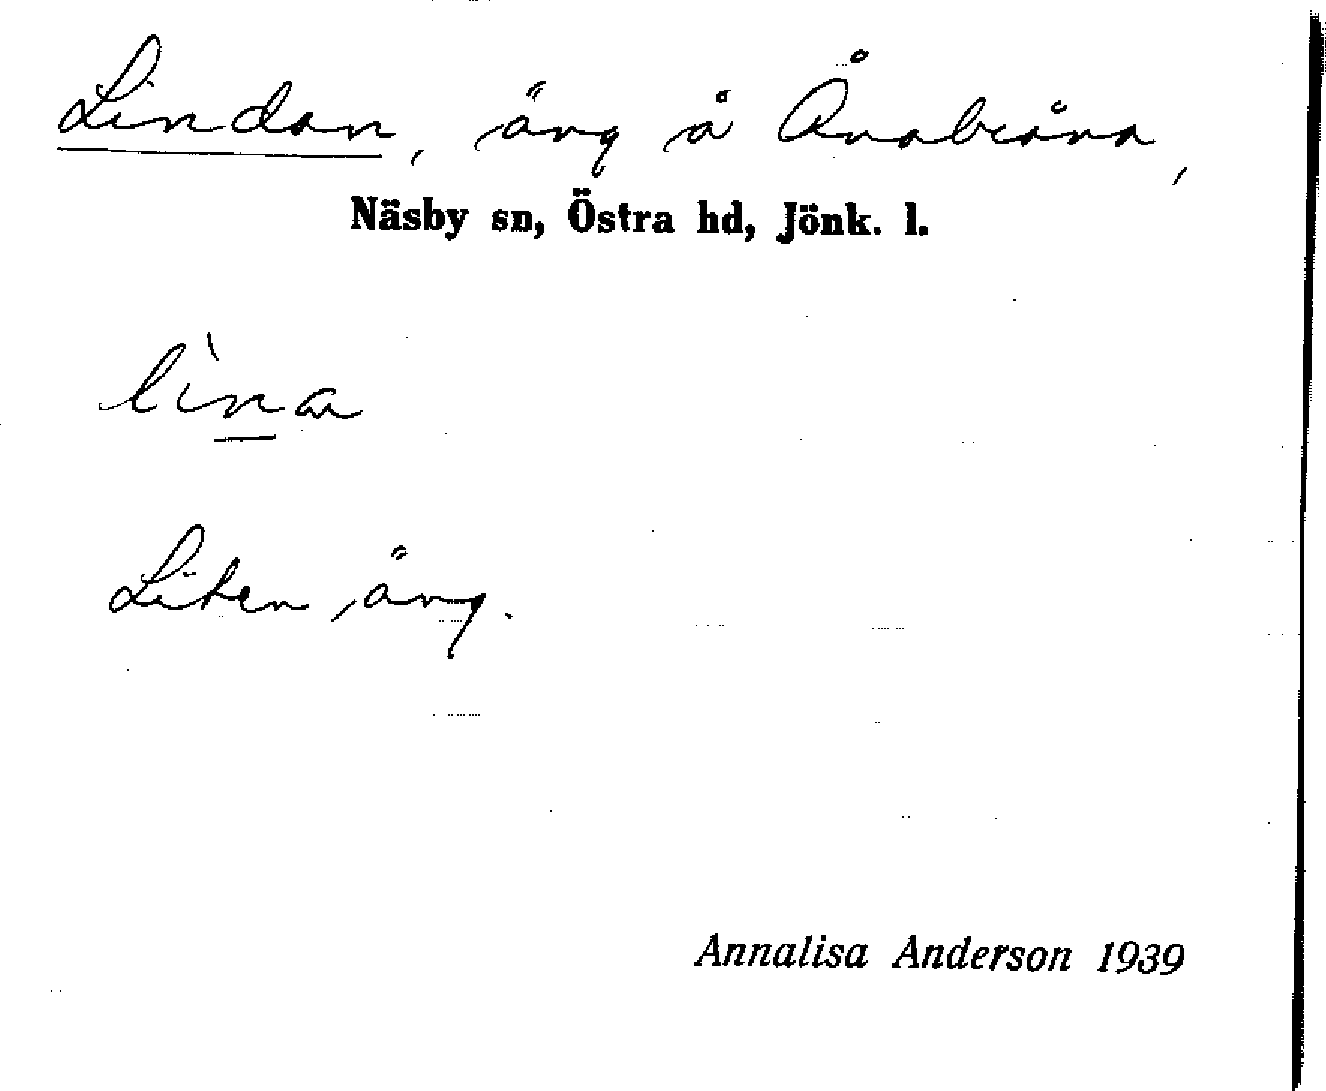 Lindan, äng å Ånabråna,
Näsby sn, Östra hd, Jönk. l.
lìna
Liten äng.
Annalisa Anderson 1939